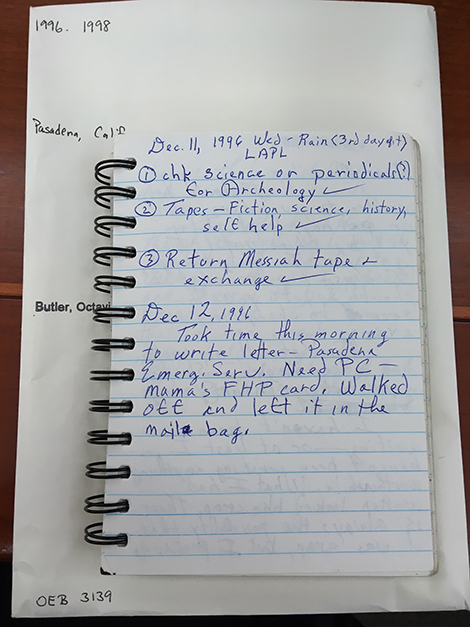 1996. 1998
Pasadena, Cal
Dec. 11, 1996 Wed - Rain (3rd day of it)
LAPL
① chk science or periodicals(?)
for Archeology ✓
② Tapes - Fiction, science, history,
self help ✓
③ Return Messiah tape &
exchange ✓
Butler, Octavi
Dec 12, 1996
Took time this morning
to write letter - Pasadena
Emerg. Serv. Need PC -
mama's FHP card. Walked
off and left it in the
mail bag.
OEB 3139